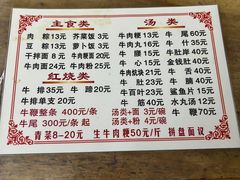 主食类 汤类
肉粽13元 芥菜饭3元 牛肉粳13元 牛尾60元
豆粽13元 萝卜饭3元 牛肉丸16元 牛什55元
干拌面8元 牛肉粳面20元 牛腩35元
牛肉面24元 牛肉粉25元 牛心15元 金钱肚40元
红烧类 牛肉焿块21元 牛肚40元
牛排35元 牛蹄20元 牛舌21元 牛肝21元
牛排单支20元 牛百叶23元 鲨鱼片15元
牛鞭整条400元/条 牛筋40元 水丸汤12元
牛尾300元/条起 汤类+面3元/碗 牛鞭70元
汤类+粉4元/碗
青菜8-20元 生牛肉粳50元/斤 拼盘面议